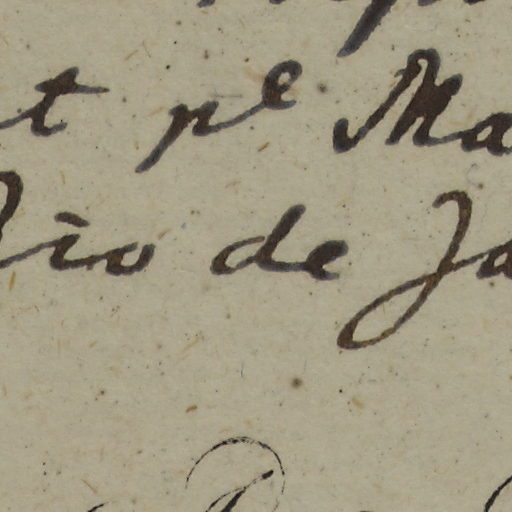 t pe Ma
Rio de Ja